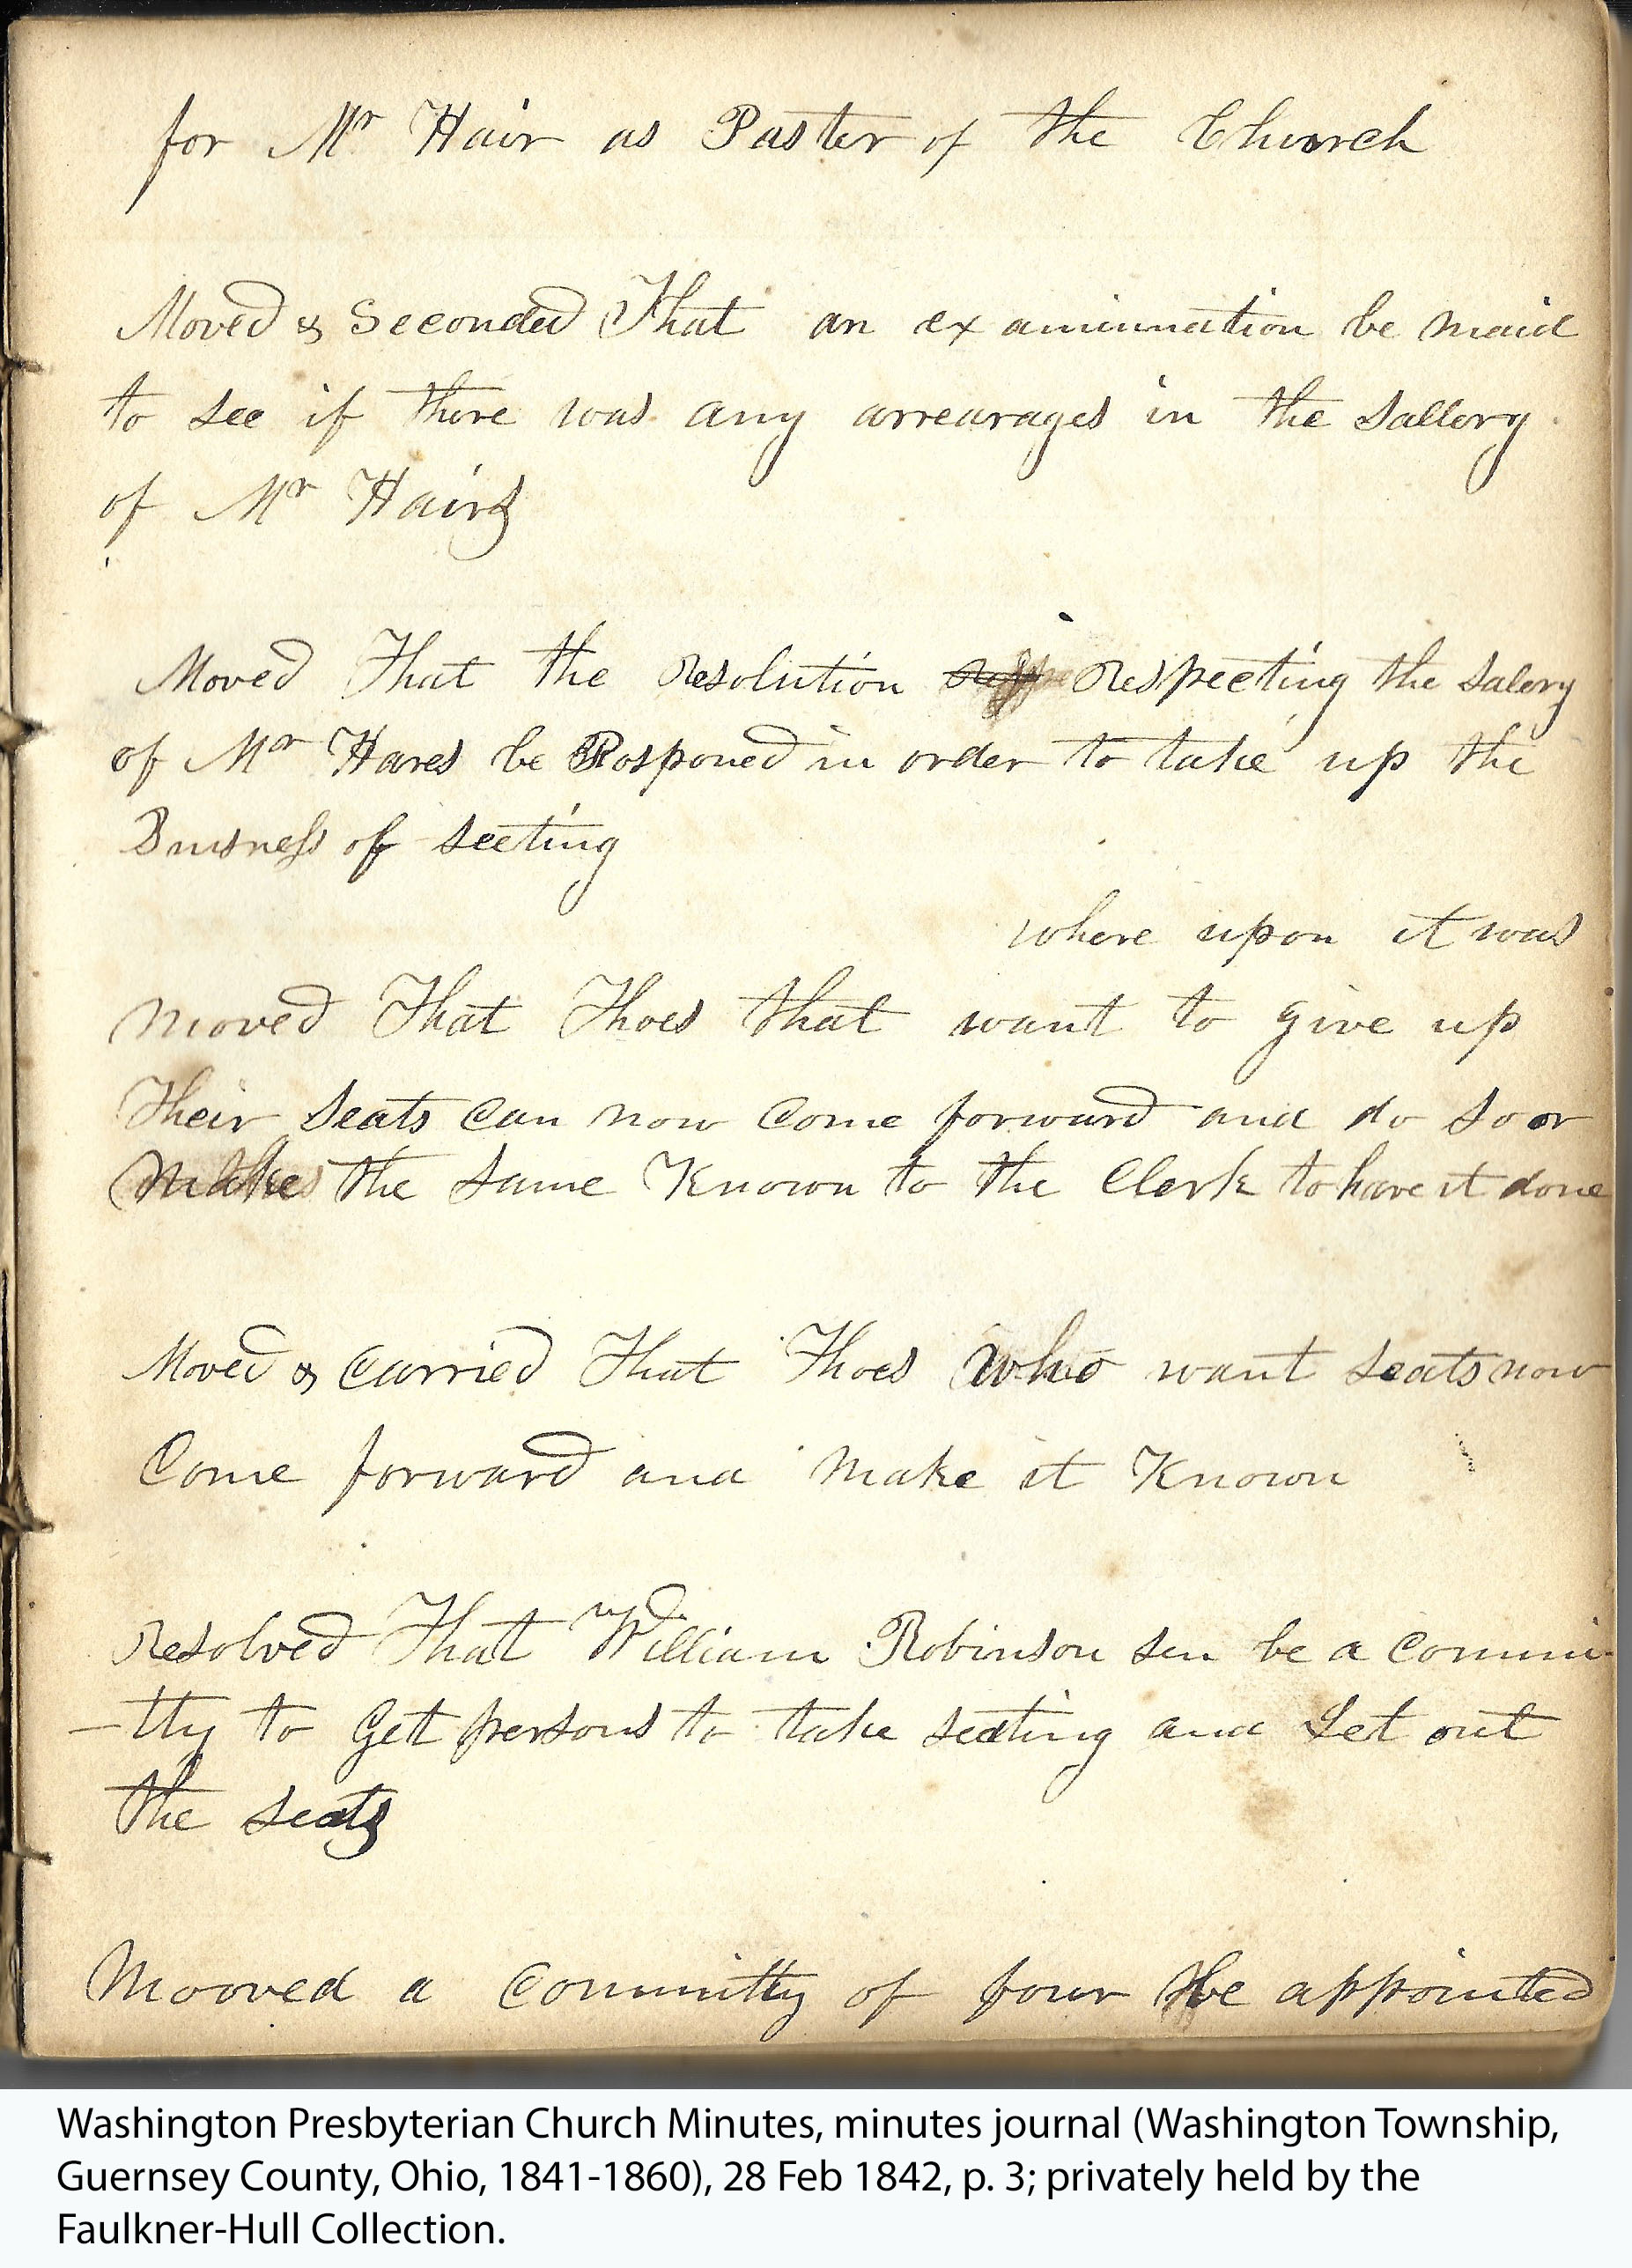 for Mr Hair as Paster of the Church
Moved & Seconded That an examinnation be maid
to see if there was any arrearages in the Sallery
of Mr Hairs
Moved That the Resolution Respecting the Salery
of Mr Hares be Posponed in order to take up the
Buisness of seeting
where upon it was
Moved That Thoes that want to give up
Their Seats Can now Come forward and do so or
Make the same Known to the Clerk to have it done
Moved & Carried That Thoes who want seats now
Come forward and make it Known
Resolved That William Robinson sen be a Commi-
-tty to Get persons to take seating and Let out
the seats
Mooved a Committy of four be appointed
Washington Presbyterian Church Minutes, minutes journal (Washington Township,
Guernsey County, Ohio, 1841-1860), 28 Feb 1842, p. 3; privately held by the
Faulkner-Hull Collection.